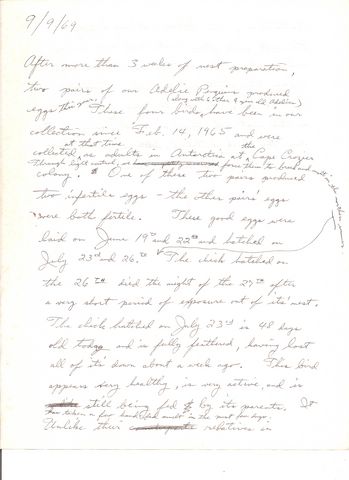 9/9/69
After more than 3 weeks of nest preparation,
two pairs of our Adelie Penguins produced
(along with 6 other 9 year old Adelies)
eggs this year. These four birds, have been in our
collection since Feb. 14, 1965 and were
at that time the
collected, as adults in Antarctica at Cape Crozier
Through light control, we force them to breed and molt in the northern summer
colony. One of these two pairs produced
two infertile eggs - the other pair's eggs
were both fertile. These good eggs were
laid on June 19th and 22nd and hatched on
July 23rd and 26th. The chick hatched on
the 26th died the night of the 27th after
a very short period of exposure out of its' nest.
The chick hatched on July 23rd is 48 days
old today and is fully feathered, having lost
all of it's down about a week ago. This bird
appears very healthy, is very active, and is
still being fed by its parents. It
has taken a few hand fed smelt in the last few days.
Unlike their relatives in